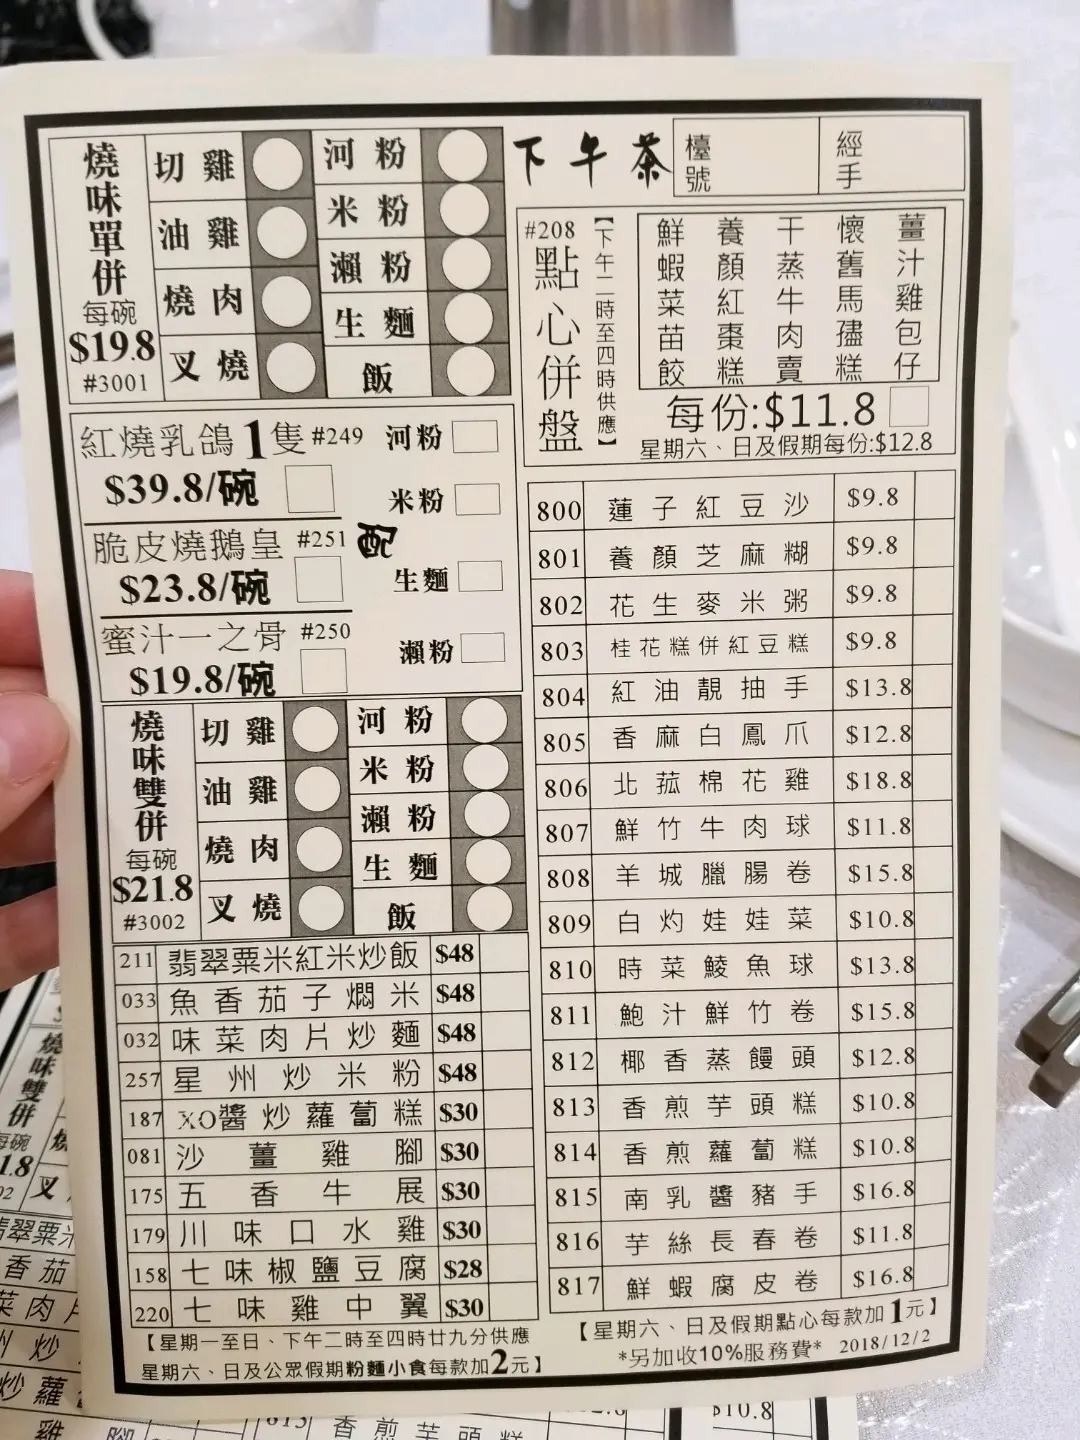 下午茶
檯號
經手
燒味單併
每碗
$19.8
#3001
切雞
油雞
燒肉
叉燒
河粉
米粉
瀨粉
生麵
飯
#208
點心併盤
【下午二時至四時供應】
鮮蝦菜苗餃
養顏紅棗糕
干蒸牛肉賣
懷舊馬孻糕
薑汁雞包仔
每份:$11.8
星期六、日及假期每份:$12.8
紅燒乳鴿1隻 #249
$39.8/碗
脆皮燒鵝皇 #251
$23.8/碗
蜜汁一之骨 #250
$19.8/碗
配
河粉
米粉
生麵
瀨粉
燒味雙併
每碗
$21.8
#3002
切雞
油雞
燒肉
叉燒
河粉
米粉
瀨粉
生麵
飯
211 翡翠粟米紅米炒飯 $48
033 魚香茄子燜米 $48
032 味菜肉片炒麵 $48
257 星州炒米粉 $48
187 XO醬炒蘿蔔糕 $30
081 沙薑雞腳 $30
175 五香牛展 $30
179 川味口水雞 $30
158 七味椒鹽豆腐 $28
220 七味雞中翼 $30
【星期一至日、下午二時至四時廿九分供應
星期六、日及公眾假期粉麵小食每款加2元】
800 蓮子紅豆沙 $9.8
801 養顏芝麻糊 $9.8
802 花生麥米粥 $9.8
803 桂花糕併紅豆糕 $9.8
804 紅油靚抽手 $13.8
805 香麻白鳳爪 $12.8
806 北菰棉花雞 $18.8
807 鮮竹牛肉球 $11.8
808 羊城臘腸卷 $15.8
809 白灼娃娃菜 $10.8
810 時菜鯪魚球 $13.8
811 鮑汁鮮竹卷 $15.8
812 椰香蒸饅頭 $12.8
813 香煎芋頭糕 $10.8
814 香煎蘿蔔糕 $10.8
815 南乳醬豬手 $16.8
816 芋絲長春卷 $11.8
817 鮮蝦腐皮卷 $16.8
【星期六、日及假期點心每款加1元】
*另加收10%服務費* 2018/12/2
燒味雙併
每碗
1.8
叉
翡翠粟米
香茄
菜肉片
州炒
炒蘿
雞
腳
813 香煎芋頭糕
$10.8